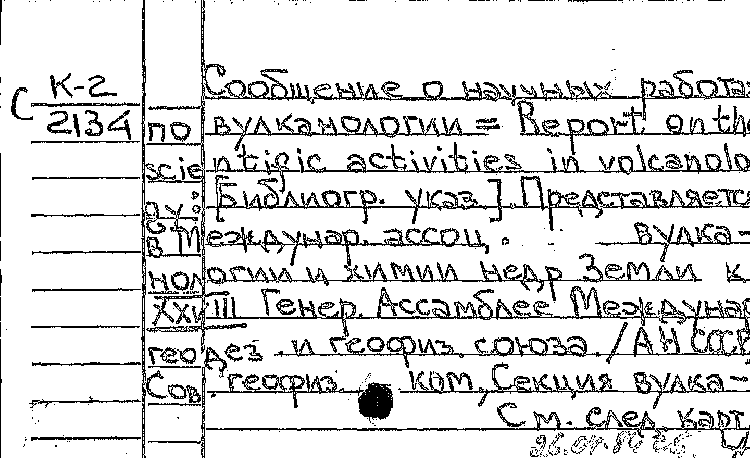 С К-2 Сообщение о научных работа
2134 по вулканологии = Report on the
scientific activities in volcanolo
gy: [Библиогр. указ]. Представляется
в Междунар. ассоц. вулка-
нологии и химии недр Земли к
XXVIII Генер. Ассамблее Междунар
геодез. и геофиз. союза. / АН СССР
Сов. геофиз. ком., Секция вулка-
См. след. карт